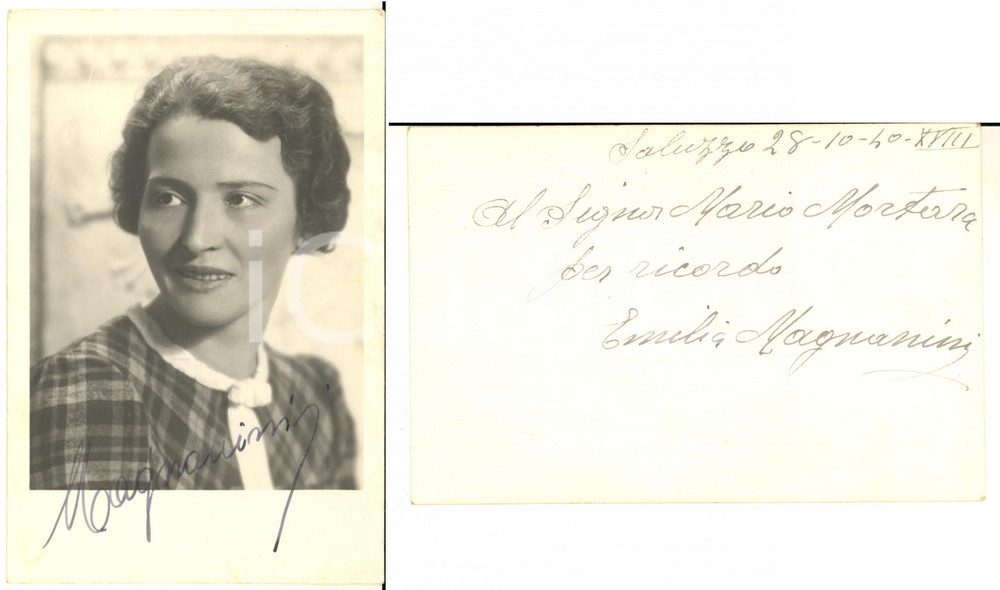 Magnanini
Saluzzo 28-10-40-XVIII
Al Signor Mario Morterra
per ricordo
Emilia Magnanini